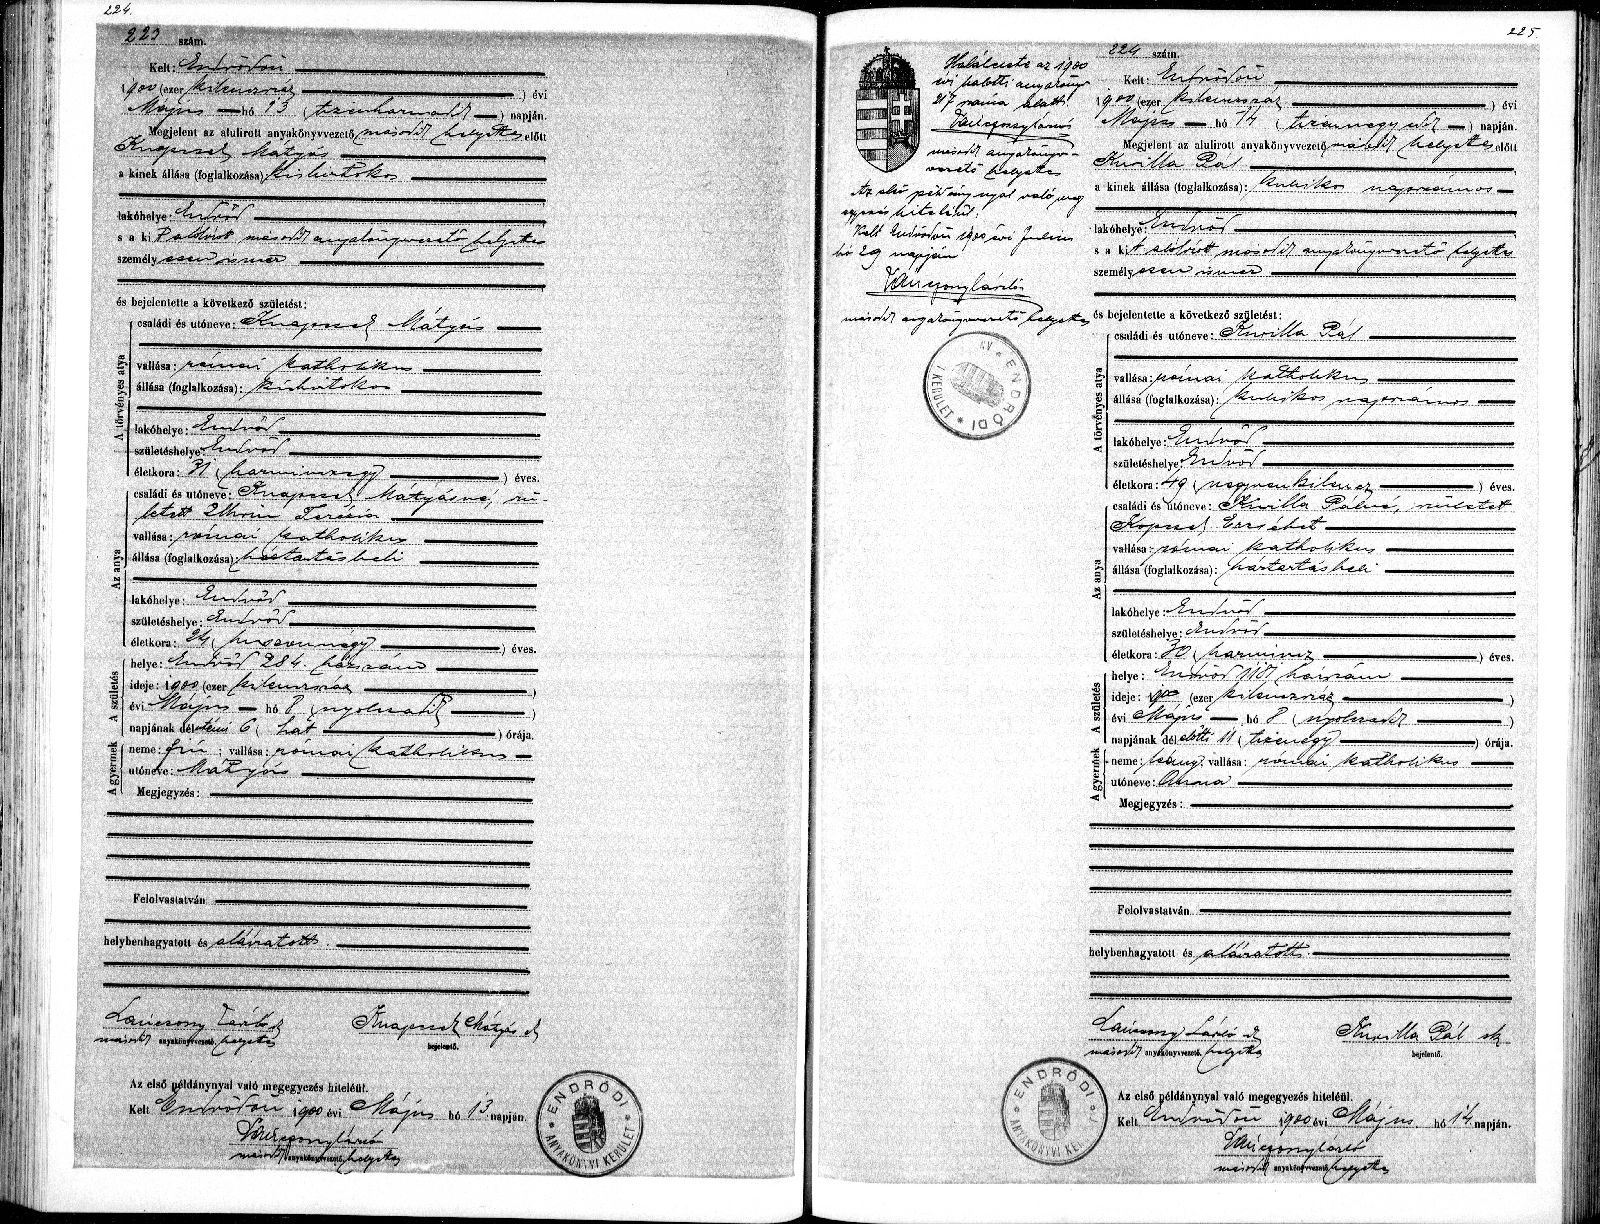 224.
223 szám.
Kelt: Endrődön
1900 (ezer kilenczszáz ) évi
Május hó 13 (tizenharmadik ) napján.
Megjelent az alulirott anyakönyvvezető második helyettes előtt
Knapcsek Mátyás
a kinek állása (foglalkozása): kisbirtokos
lakóhelye: Endrőd
s a kit aláírott második anyakönyvvezető helyettes
személyesen ismer
és bejelentette a következő születést:
A törvényes atya
családi és utóneve: Knapcsek Mátyás
vallása: római katholikus
állása (foglalkozása): kisbirtokos
lakóhelye: Endrőd
születéshelye: Endrőd
életkora: 31 (harminczegy ) éves.
Az anya
családi és utóneve: Knapcsek Mátyásné, szü-
letett Terézia
vallása: római katholikus
állása (foglalkozása): háztartásbeli
lakóhelye: Endrőd
születéshelye: Endrőd
életkora: 24 (huszonnégy ) éves.
A születés
helye: Endrőd 284. házszám
ideje: 1900 (ezer kilenczszáz )
évi Május hó 8 (nyolczadik )
napjának délutáni 6 (hat ) órája.
A gyermek
neme: fiú; vallása: római katholikus
utóneve: Mátyás
Megjegyzés:
Felolvastatván
helybenhagyatott és aláiratott.
Lánczsony László sk Knapcsek Mátyás sk
második anyakönyvvezető helyettes bejelentő.
Az első példánynyal való megegyezés hiteléül.
Kelt Endrődön 1900 évi Május hó 13 napján.
második anyakönyvvezető helyettes
ENDRŐDI * ANYAKÖNYVI KERÜLET *
225.
Halálesete az 1900
évi halotti anyakönyv
217 száma alatt.
második anyakönyv-
vezető helyettes
Az első példánynyal való meg
egyezés hiteléül.
Kelt Endrődön 1900 évi Junius
hó 29 napján
második anyakönyvvezető helyettes
ENDRŐDI * I KERÜLET *
224 szám.
Kelt: Endrődön
1900 (ezer kilenczszáz ) évi
Május hó 14 (tizennegyedik ) napján.
Megjelent az alulirott anyakönyvvezető második helyettes előtt
Kurilla Pál
a kinek állása (foglalkozása): kubikos napszámos
lakóhelye: Endrőd
s a kit alólírott második anyakönyvvezető helyettes
személyesen ismer
és bejelentette a következő születést:
A törvényes atya
családi és utóneve: Kurilla Pál
vallása: római katholikus
állása (foglalkozása): kubikos napszámos
lakóhelye: Endrőd
születéshelye: Endrőd
életkora: 49 (negyvenkilencz ) éves.
Az anya
családi és utóneve: Kurilla Pálné, született
Kopcsek Erzsébet
vallása: római katholikus
állása (foglalkozása): háztartásbeli
lakóhelye: Endrőd
születéshelye: Endrőd
életkora: 30 (harmincz ) éves.
A születés
helye: Endrőd házszám
ideje: 1900 (ezer kilenczszáz )
évi Május hó 8 (nyolczadik )
napjának délelőtti 11 (tizenegy ) órája.
A gyermek
neme: leány; vallása: római katholikus
utóneve: Anna
Megjegyzés:
Felolvastatván
helybenhagyatott és aláiratott.
Lánczsony László sk Kurilla Pál sk
második anyakönyvvezető helyettes bejelentő.
Az első példánynyal való megegyezés hiteléül.
Kelt Endrődön 1900 évi Május hó 14 napján.
második anyakönyvvezető helyettes
ENDRŐDI * I ANYAKÖNYVI KER